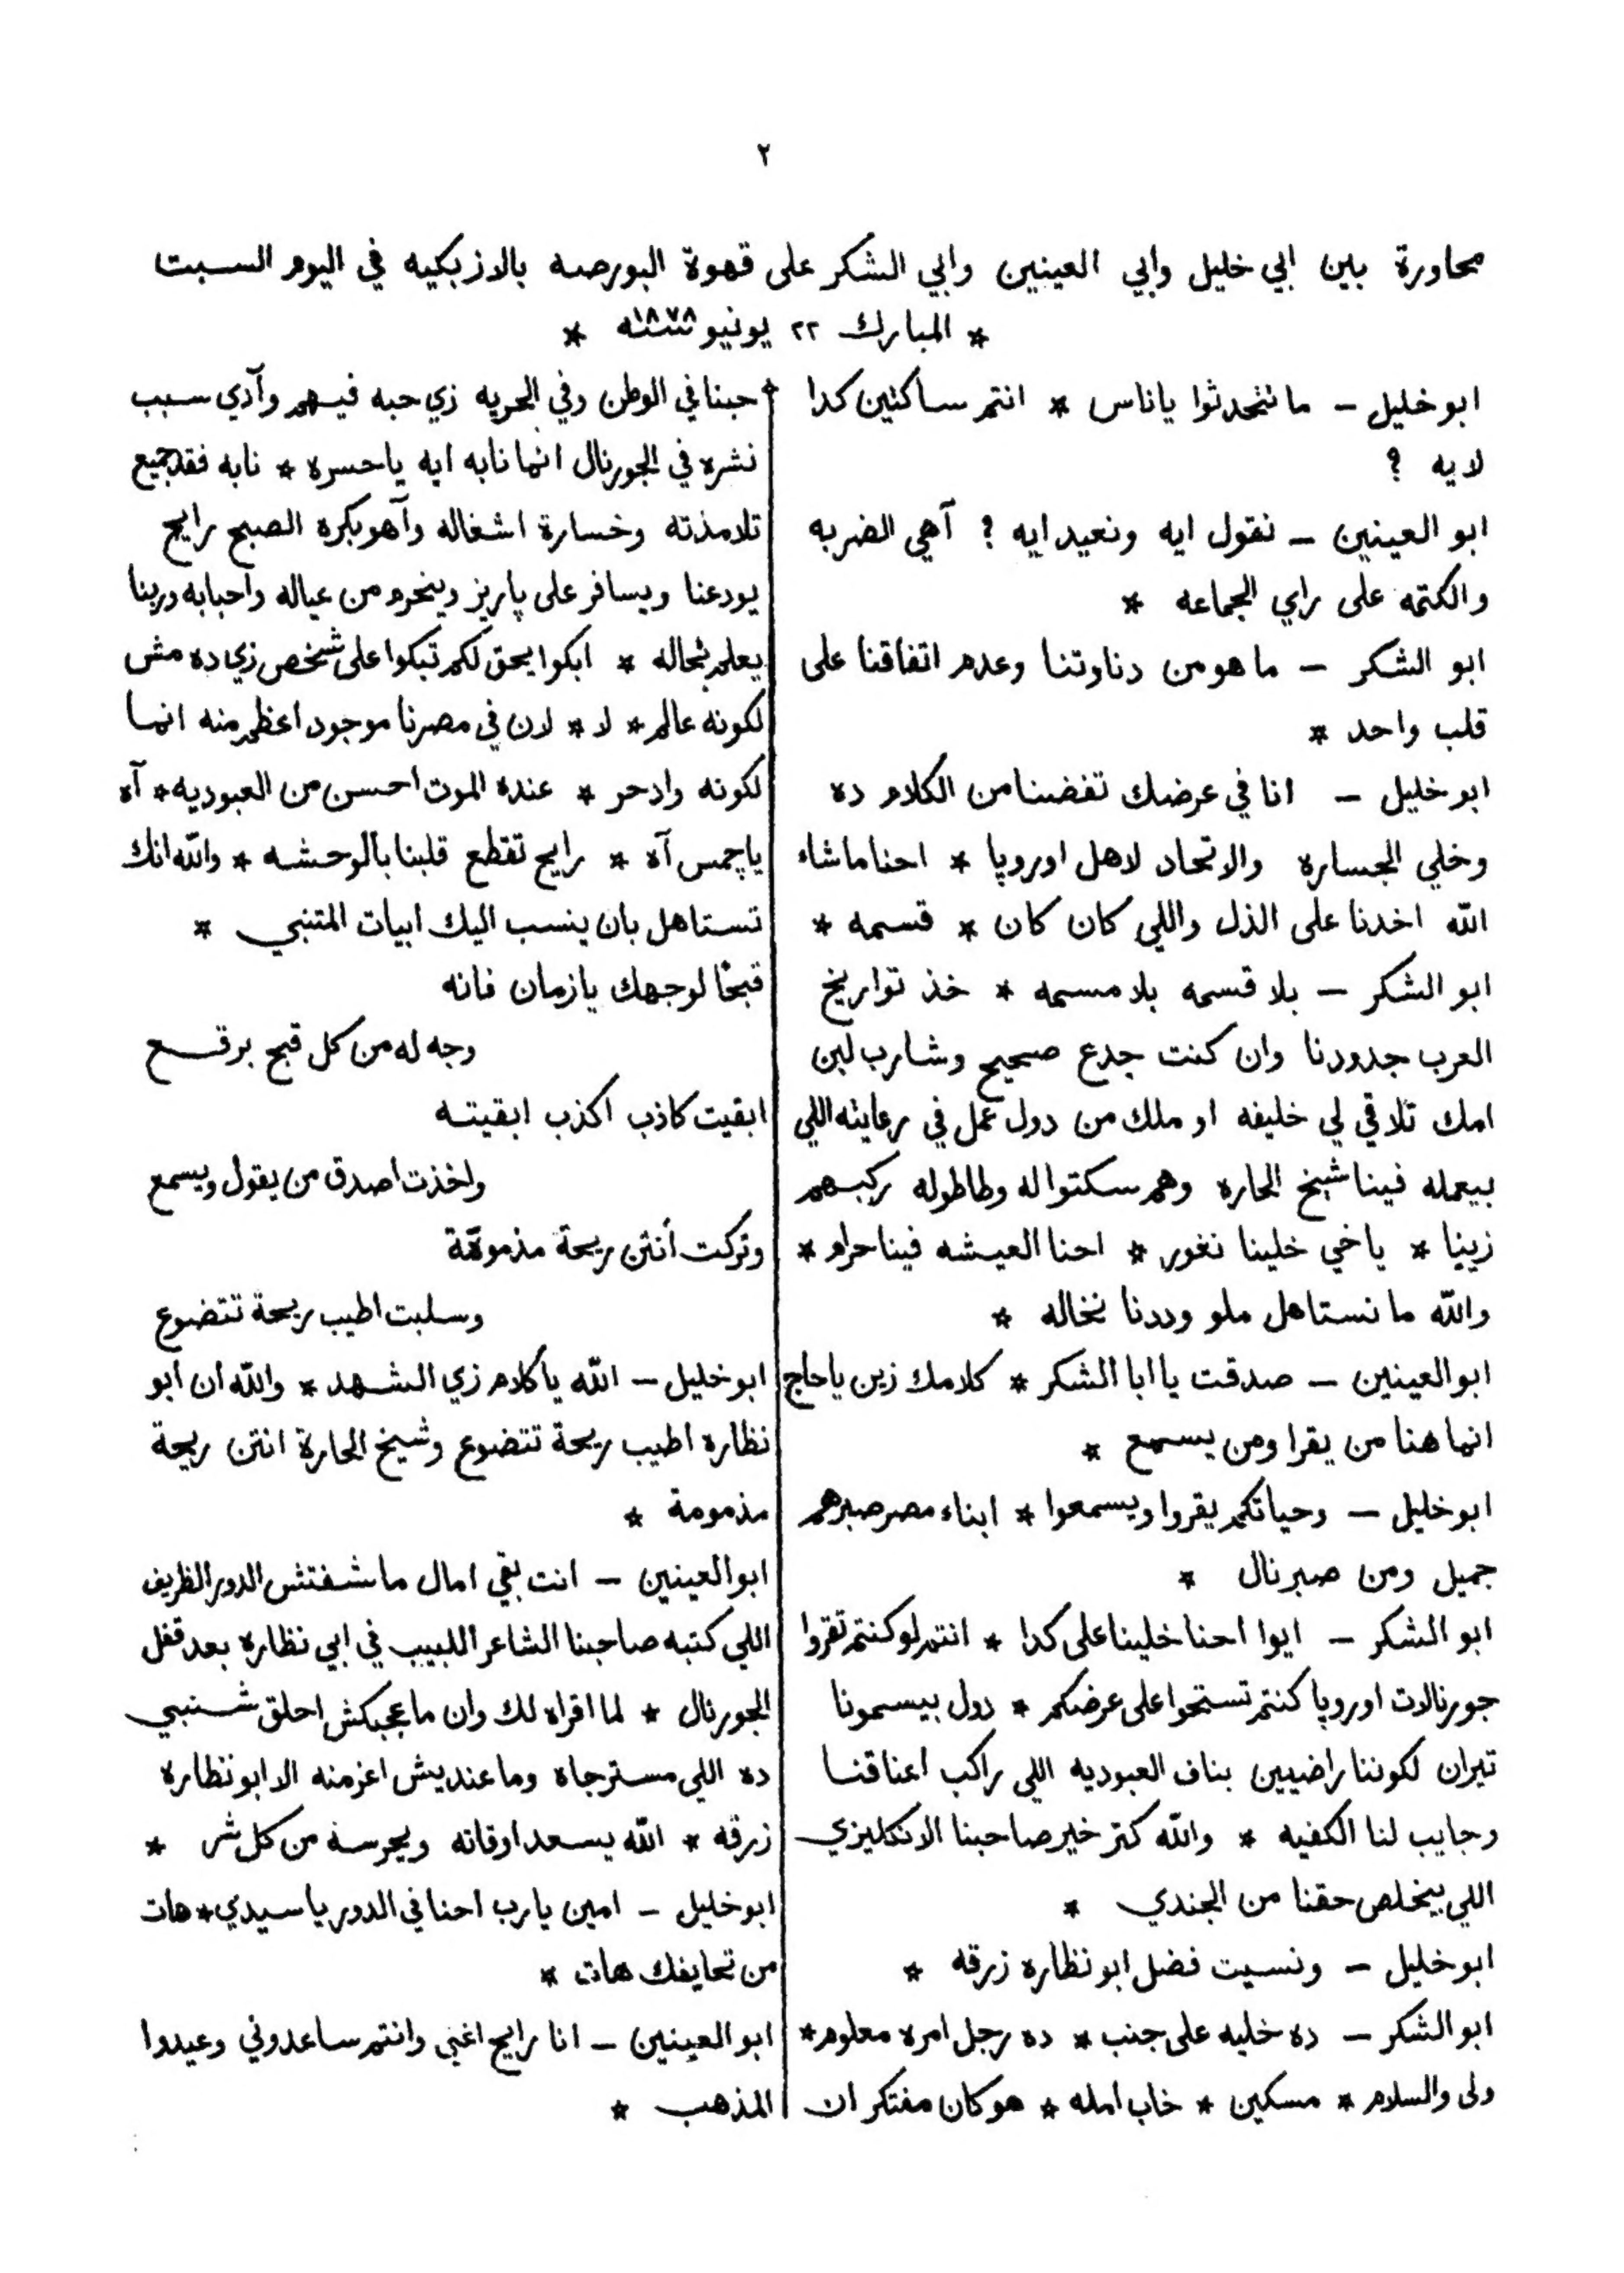 ٢
محاورة بين ابي خليل وابي العينين وابي الشكر على قهوة البورصه بالازبكيه في اليوم السبت
* المبارك ٢٢ يونيو سنة ١٨٧٨ *
ابو خليل – ما تتحدثوا ياناس * انتم ساكتين كدا
لايه ؟
ابو العينين – نقول ايه ونعيد ايه ؟ آهي الضربه
والكتمه على راي الجماعه *
ابو الشكر – ما هو من دناوتنا وعدم اتفاقنا على
قلب واحد *
ابو خليل – انا في عرضك تفضنا من الكلام ده
وخلي الجساره والاتحاد لاهل اوروپا * احنا ماشاء
الله اخدنا على الذل واللي كان كان * قسمه *
ابو الشكر – بلا قسمه بلا مسمه * خذ تواريخ
العرب جدودنا وان كنت جدع صحيح وشارب لبن
امك تلاقي لي خليفه او ملك من دول عمل في رعايته اللي
بيعمله فينا شيخ الحاره وهم سكتوا له وطاطوله ركبهم
زيينا * ياخي خلينا نغور * احنا العيشه فينا حرام *
والله ما نستاهل ملو وددنا نخاله *
ابو العينين – صدقت يا ابا الشكر * كلامك زين ياحاج
انما هنا من يقرا ومن يسمع *
ابو خليل – وحياتكم يقروا ويسمعوا * ابناء مصر صبرهم
جميل ومن صبر نال *
ابو الشكر – ايوا احنا خلينا على كدا * انتم لو كنتم تقروا
جورنالات اوروپا كنتم تستحوا على عرضكم * دول بيسمونا
تيران لكوننا راضيين بناف العبوديه اللي راكب اعناقنا
وجايب لنا الكفيه * والله كتر خير صاحبنا الانكليزي
اللي بيخلص حقنا من الجندي *
ابو خليل – ونسيت فضل ابو نظاره زرقه *
ابو الشكر – ده خليه على جنب * ده رجل امره معلوم *
ولى والسلام * مسكين * خاب امله * هو كان مفتكر ان
حبنا في الوطن وفي الحريه زي حبه فيهم وآدي سبب
نشره في الجورنال انما نابه ايه ياحسره * نابه فقد جميع
تلامذته وخسارة اشغاله وآهو بكره الصبح رايح
يودعنا ويسافر على پاريز وينحرم من عياله واحبابه وربنا
يعلم بحاله * ابكوا يحق لكم تبكوا على شخص زي ده مش
لكونه عالم * لا * لان في مصرنا موجود اعظم منه انما
لكونه واد حر * عنده الموت احسن من العبوديه * آه
ياچمس آه * رايح تقطع قلبنا بالوحشه * والله انك
تستاهل بان ينسب اليك ابيات المتنبي *
قبحًا لوجهك يا زمان فانه
وجه له من كل قبح برقع
ابقيت كاذب اكذب ابقيته
واخذت اصدق من يقول ويسمع
وتركت أنتن ريحة مذمومة
وسلبت اطيب ريحة تتضوع
ابو خليل – الله يا كلام زي الشهد * والله ان ابو
نظاره اطيب ريحة تتضوع وشيخ الحارة انتن ريحة
مذمومة *
ابو العينين – انت بقي امال ما شفتش الدور الظريف
اللي كتبه صاحبنا الشاعر اللبيب في ابي نظاره بعد قفل
الجورنال * لما اقراه لك وان ما عجبكش احلق شنبي
ده اللي مسترجاه وما عنديش اعز منه الا ابو نظاره
زرقه * الله يسعد اوقاته ويحرسه من كل شر *
ابو خليل – امين يارب احنا في الدور يا سيدي * هات
من تحايفك هات *
ابو العينين – انا رايح اغني وانتم ساعدوني وعيدوا
المذهب *